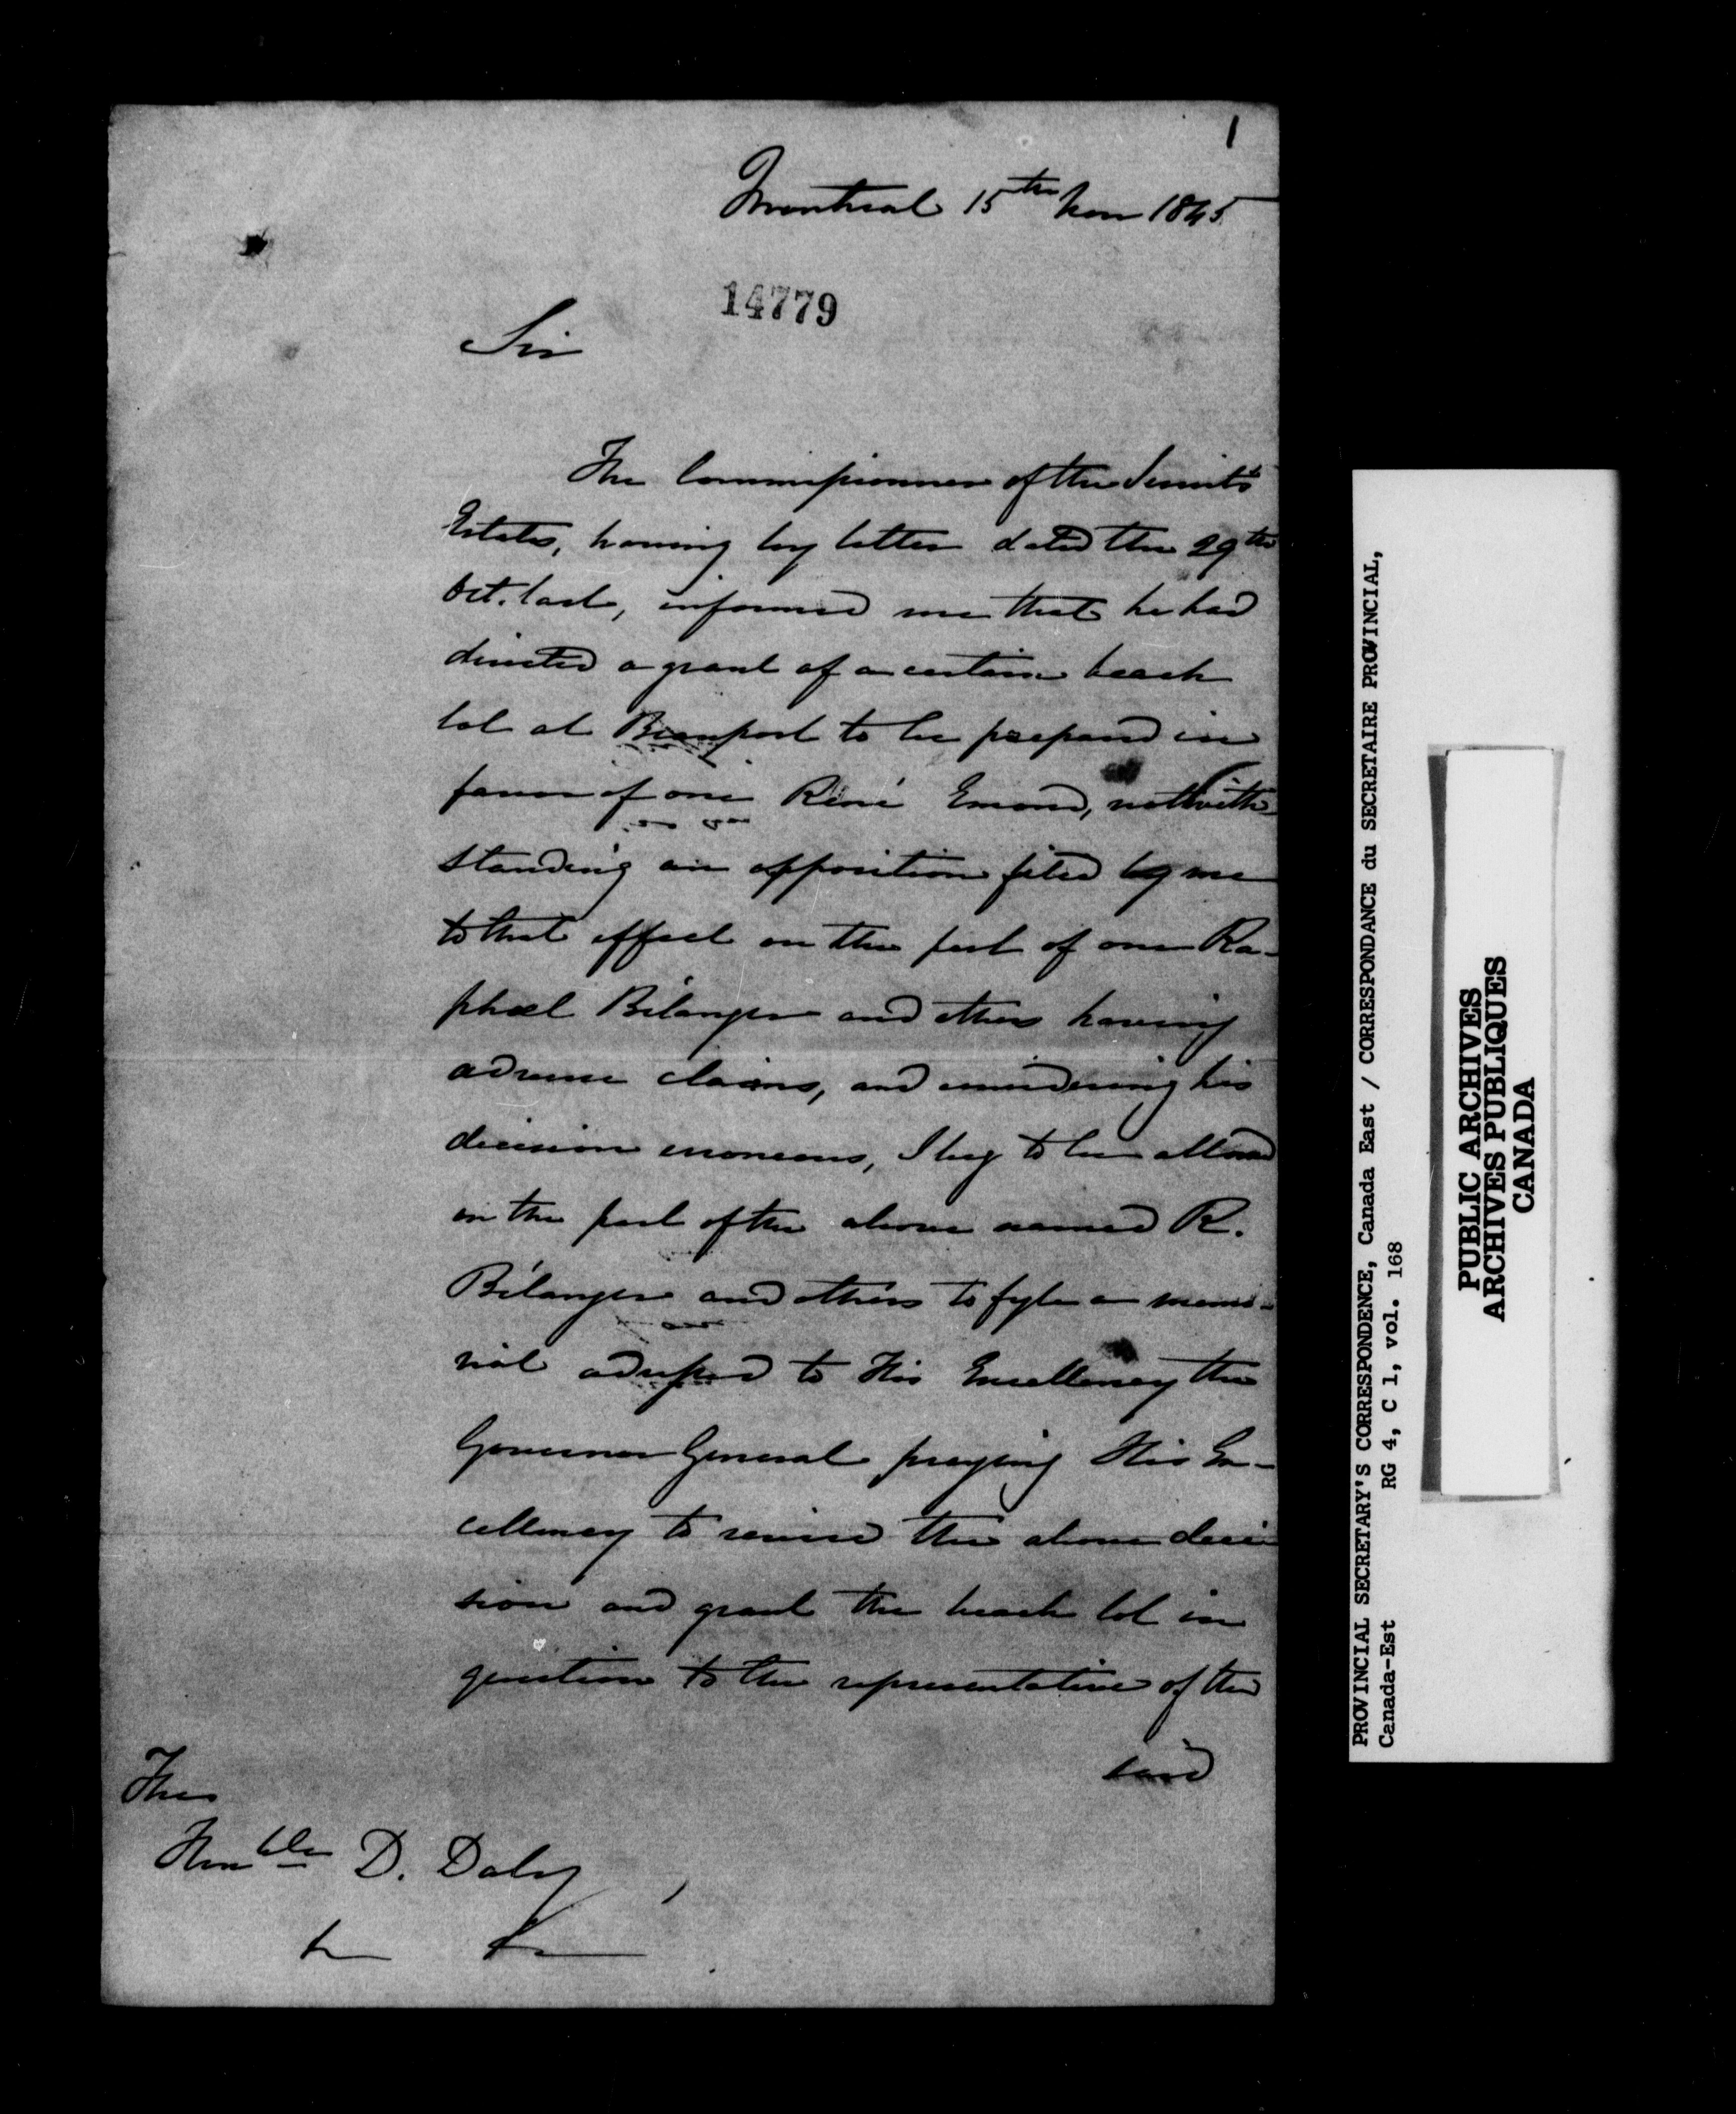 1
Montreal 15th Nov 1845
14779
Sir
The Commissioner of the Jesuits
Estates, having by letter dated the 29th
Oct. last, informed me that he had
directed a grant of a certain beach
lot at Beauport to be prepared in
favor of one René Emond, notwith-
standing an opposition filed by me
to that effect on the part of one Ra-
phael Bélanger and others having
adverse claims, and considering his
decision erroneous, I beg to be allowed
on the part of the above named R.
Bélanger and others to fyle a memo-
rial adressed to His Excellency the
Governor General praying His Ex-
cellency to revise the above deci
sion and grant the beach lot in
question to the representative of the
said
The
Honble D. Daly,
PROVINCIAL SECRETARY'S CORRESPONDENCE, Canada East / CORRESPONDANCE du SECRETAIRE PROVINCIAL,
Canada-Est RG 4, C 1, vol. 168
PUBLIC ARCHIVES
ARCHIVES PUBLIQUES
CANADA